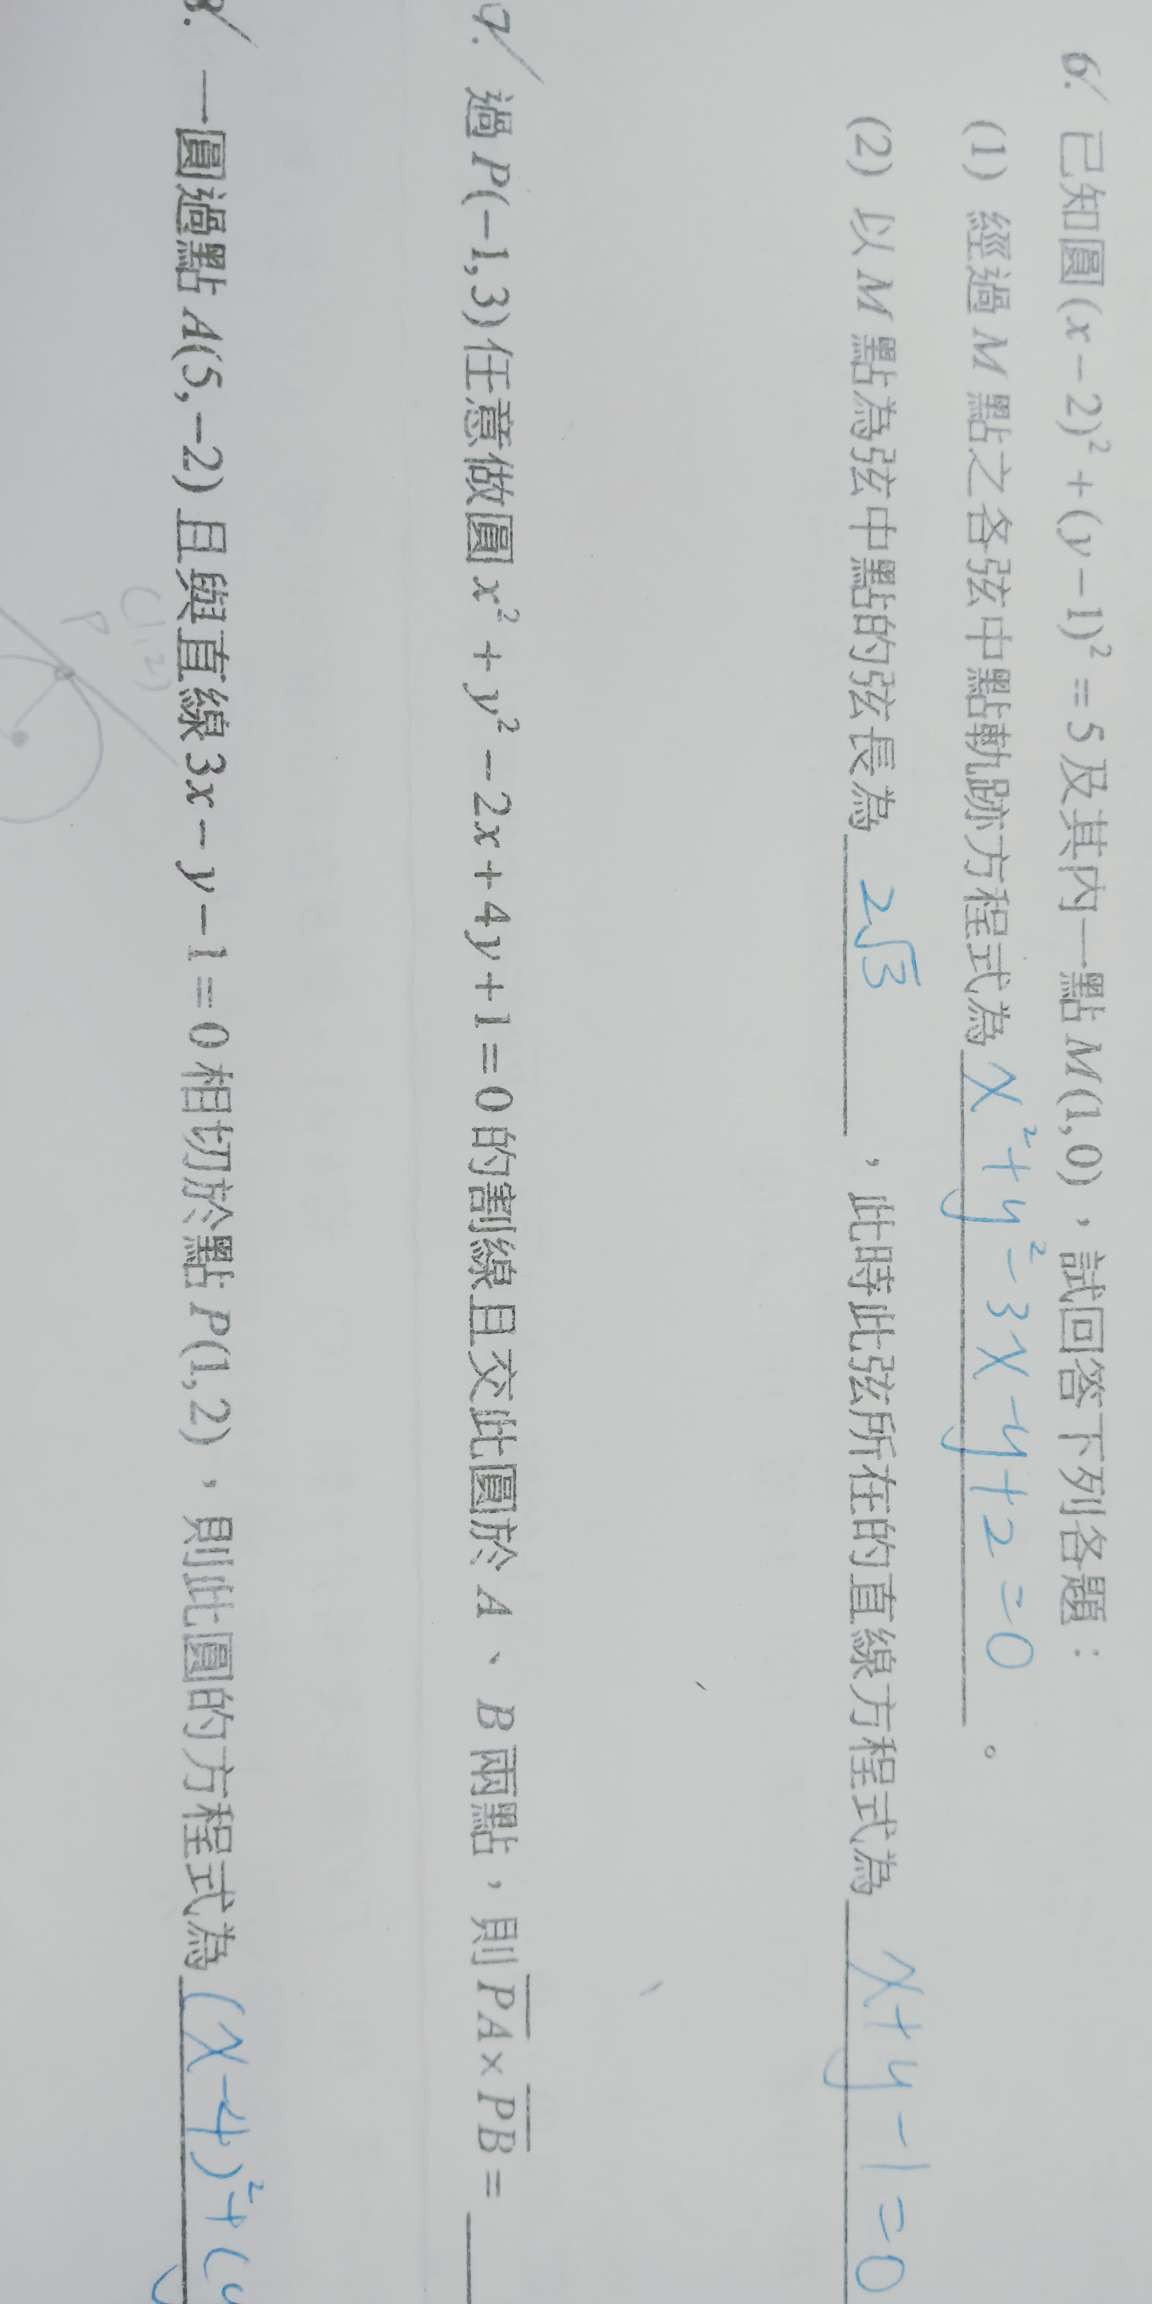 6. 已知圓(x-2)²+(y-1)²=5及其內一點M(1,0)，試回答下列各題：
(1) 經過M點之各弦中點軌跡方程式為 x²+y²-3x-y+2=0 。
(2) 以M點為弦中點的弦長為 2√3 ，此時此弦所在的直線方程式為 x+y-1=0
7. 過P(-1,3)任意做圓x²+y²-2x+4y+1=0的割線且交此圓於A、B兩點，則PA×PB=
8. 一圓過點A(5,-2)且與直線3x-y-1=0相切於點P(1,2)，則此圓的方程式為 (x-4)²+(y
(1,2)
P